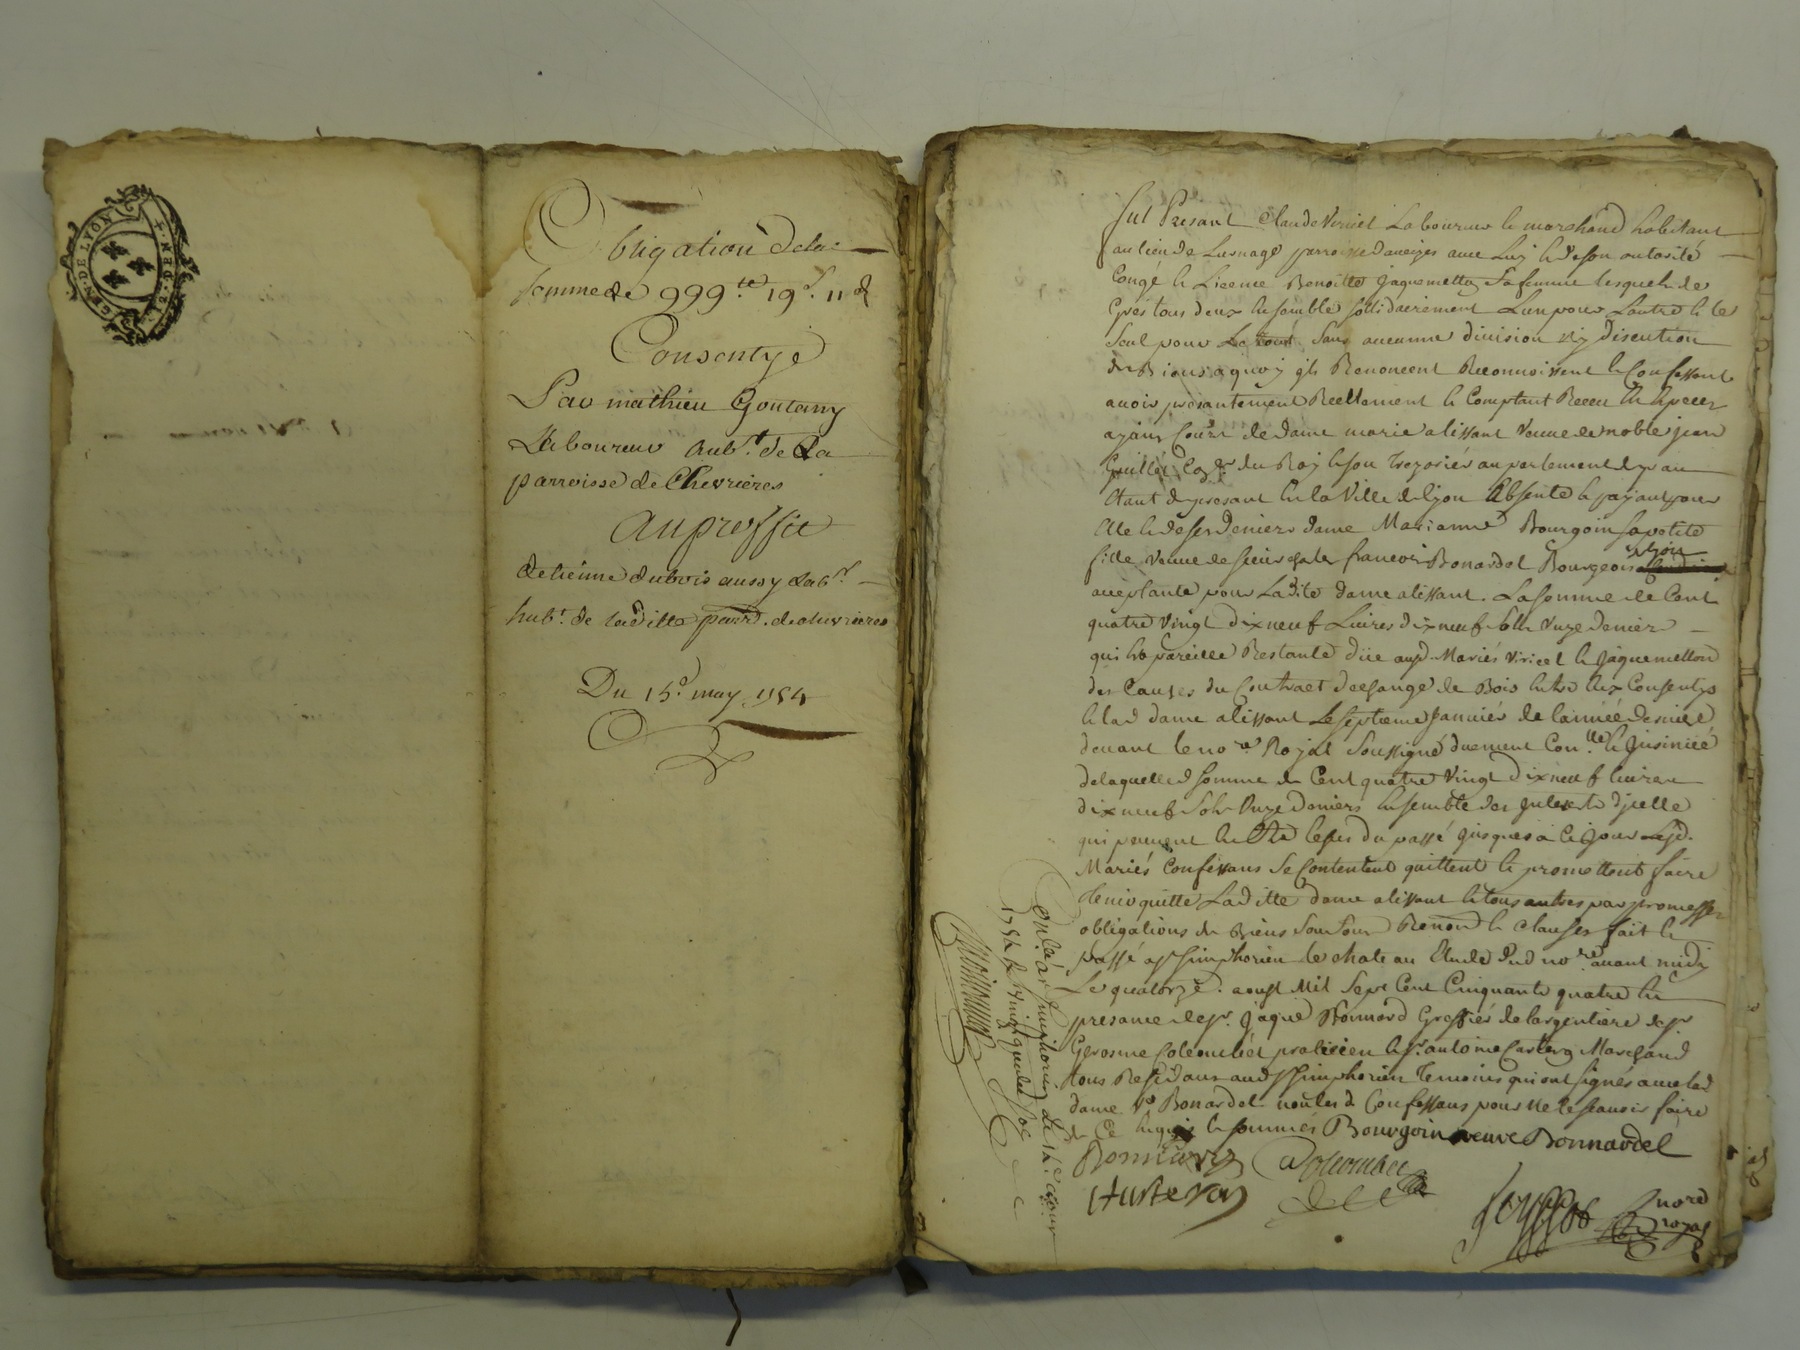 GEN. DE LYON
Obligation dela
somme de 999.tt 19.s 11.d
Consentye
Par mathieu Goutany
Laboureur hab.t de La
parroisse de Chevrieres
Au proffit
detienne dubois aussy Lab.r
hab.t de laditte parr.e de chevrieres
Du 15.e may 1754
fut Presant Claude Viricel Laboureur & marchand habitant
au lieu de Luonage parroisse daveizes avec Luy & de son autorité
Congé & Licence Benoitte Jaquemetton Sa femme lesquels de
Gres tous deux Ensemble sollidairement Lun pour Lautre & le
Seul pour Le tout Sans aucunne division ny discution
de Biens a quoy ils Renoncent Reconnoissent & Confessent
avoir presantement Reellement & Comptant Receu En Especes
ayant Cours de dame marie alissant veuve de noble jean
du Roy & son trezorier au parlement
Etant de presant En la Ville de lyon Absente & payant pour
Elle & de ses deniers dame Marianne Bourgoin sa petite
fille veuve de sieur francois Bonardel Bourgeois
delyon
acceptante pour Ladite dame alissant. La somme de Cent
quatre Vingt dixneuf Livres dixneuf Sols Unze deniers
qui Est pareille Restante düe aux.d Mariés Viricel & Jaquemetton
des Causes du Contract deschange de Bois Entre Eux Consentys
& lad dame alissant Le septieme Janvier de l'année derniere
devant le no.re Royal Soussigné duement Con.llé & Jnsinüé
delaquelle somme de Cent quatre Vingt dixneuf livres
dixneuf Sols Unze deniers Ensemble des Jnterests dycelle
qui peuvent En Etre du passé Jusques a Ce Jour
Mariés Confessans Se Contentent quittent & promettent faire
tenir quitte Laditte dame alissant & tous autres par promesses
obligations de Biens Renon.d & clauses fait &
passé a S.t Simphorien le chateau Etude dud no.re avant midy
Le quatorze. aoust Mil Sept Cent Cinquante quatre En
presance de S.r Jaque Bonnard Greffier de largentiere de S.r
Gerosme praticien & S.r antoine Marchand
tous Residans aud S.t Simphorien temoins qui ont signés avec lad
dame V.e Bonardel non lesd Confessans pour ne le scavoir faire
de Ce Enquis & sommés Bourgoin veuve Bonnardel
no.re
royal
Con.lé a S.t Simphorien Le 14.e aoust
1754